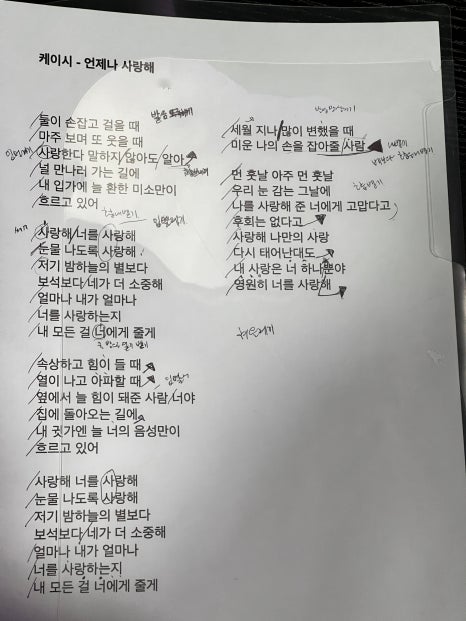 케이시 - 언제나 사랑해
둘이 손잡고 걸을 때
마주 보며 또 웃을 때
사랑한다 말하지 않아도 알아
널 만나러 가는 길에
내 입가에 늘 환한 미소만이
흐르고 있어
사랑해 너를 사랑해
눈물 나도록 사랑해
저기 밤하늘의 별보다
보석보다 네가 더 소중해
얼마나 내가 얼마나
너를 사랑하는지
내 모든 걸 너에게 줄게
속상하고 힘이 들 때
열이 나고 아파할 때
옆에서 늘 힘이 돼준 사람 너야
집에 돌아오는 길에
내 귓가엔 늘 너의 음성만이
흐르고 있어
사랑해 너를 사랑해
눈물 나도록 사랑해
저기 밤하늘의 별보다
보석보다 네가 더 소중해
얼마나 내가 얼마나
너를 사랑하는지
내 모든 걸 너에게 줄게
세월 지나 많이 변했을 때
미운 나의 손을 잡아줄 사람
먼 훗날 아주 먼 훗날
우리 눈 감는 그날에
나를 사랑해 준 너에게 고맙다고
후회는 없다고
사랑해 나만의 사랑
다시 태어난대도
내 사랑은 너 하나뿐야
영원히 너를 사랑해